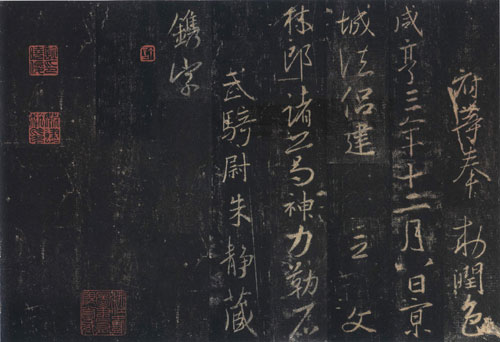 府等奉 勅潤色
咸亨三年十二月八日京
城法侶建 立 文
林郎諸葛神力勒石
武騎尉朱静藏
鐫字